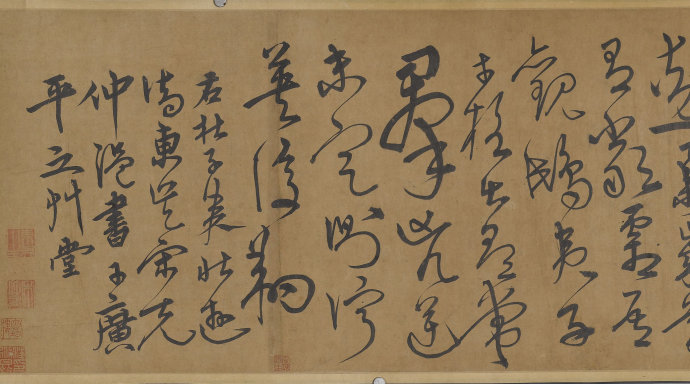 有嚴霜吾
觀鴟夷子
才格出尋常
羣兇逆
未定側佇
英俊翔
右杜子美壯遊
詩東吳宋克
仲溫書于廣
平之艸堂